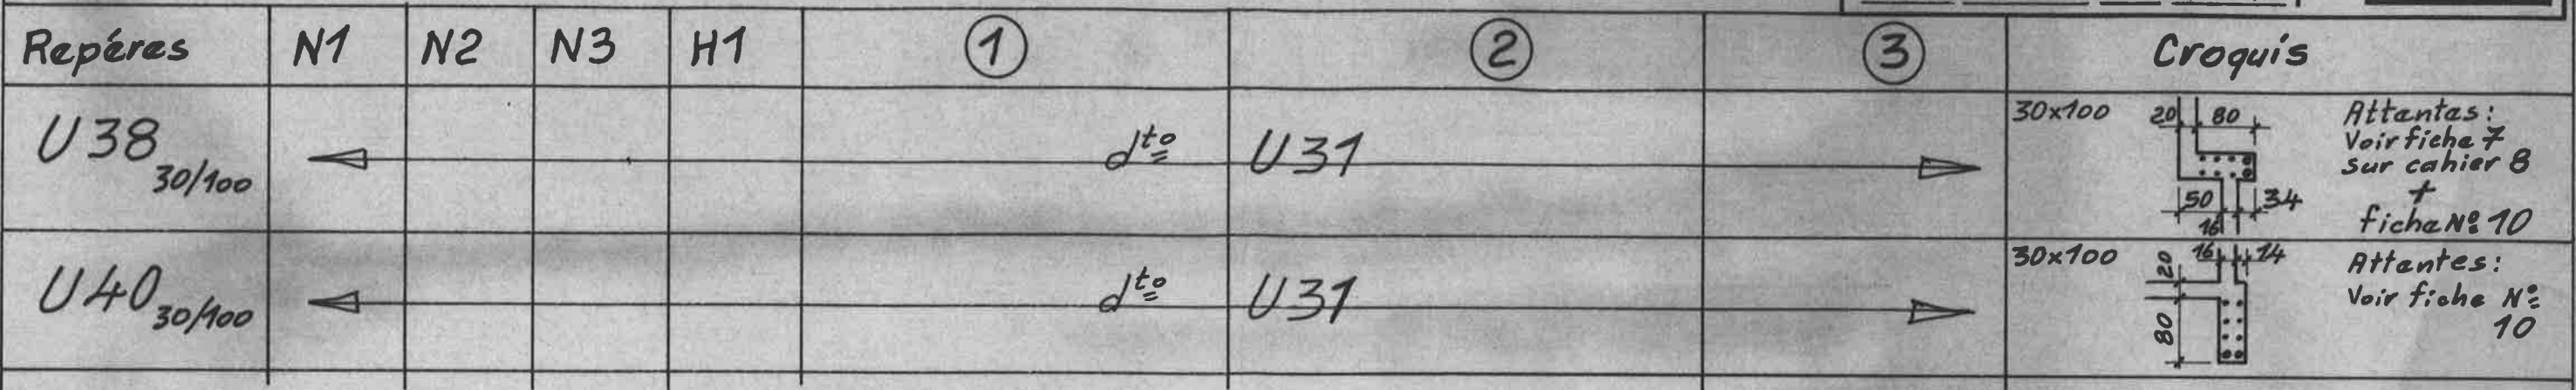 Repéres N1 N2 N3 H1 1 2 3 Croquis
U38 30/100 dto U31
30x100 20 80
50 34
16
Attentes:
Voir fiche 7
sur cahier 8
+
fiche No 10
U40 30/100 dto U31
30x100 16 14
20
80
Attentes:
Voir fiche No
10